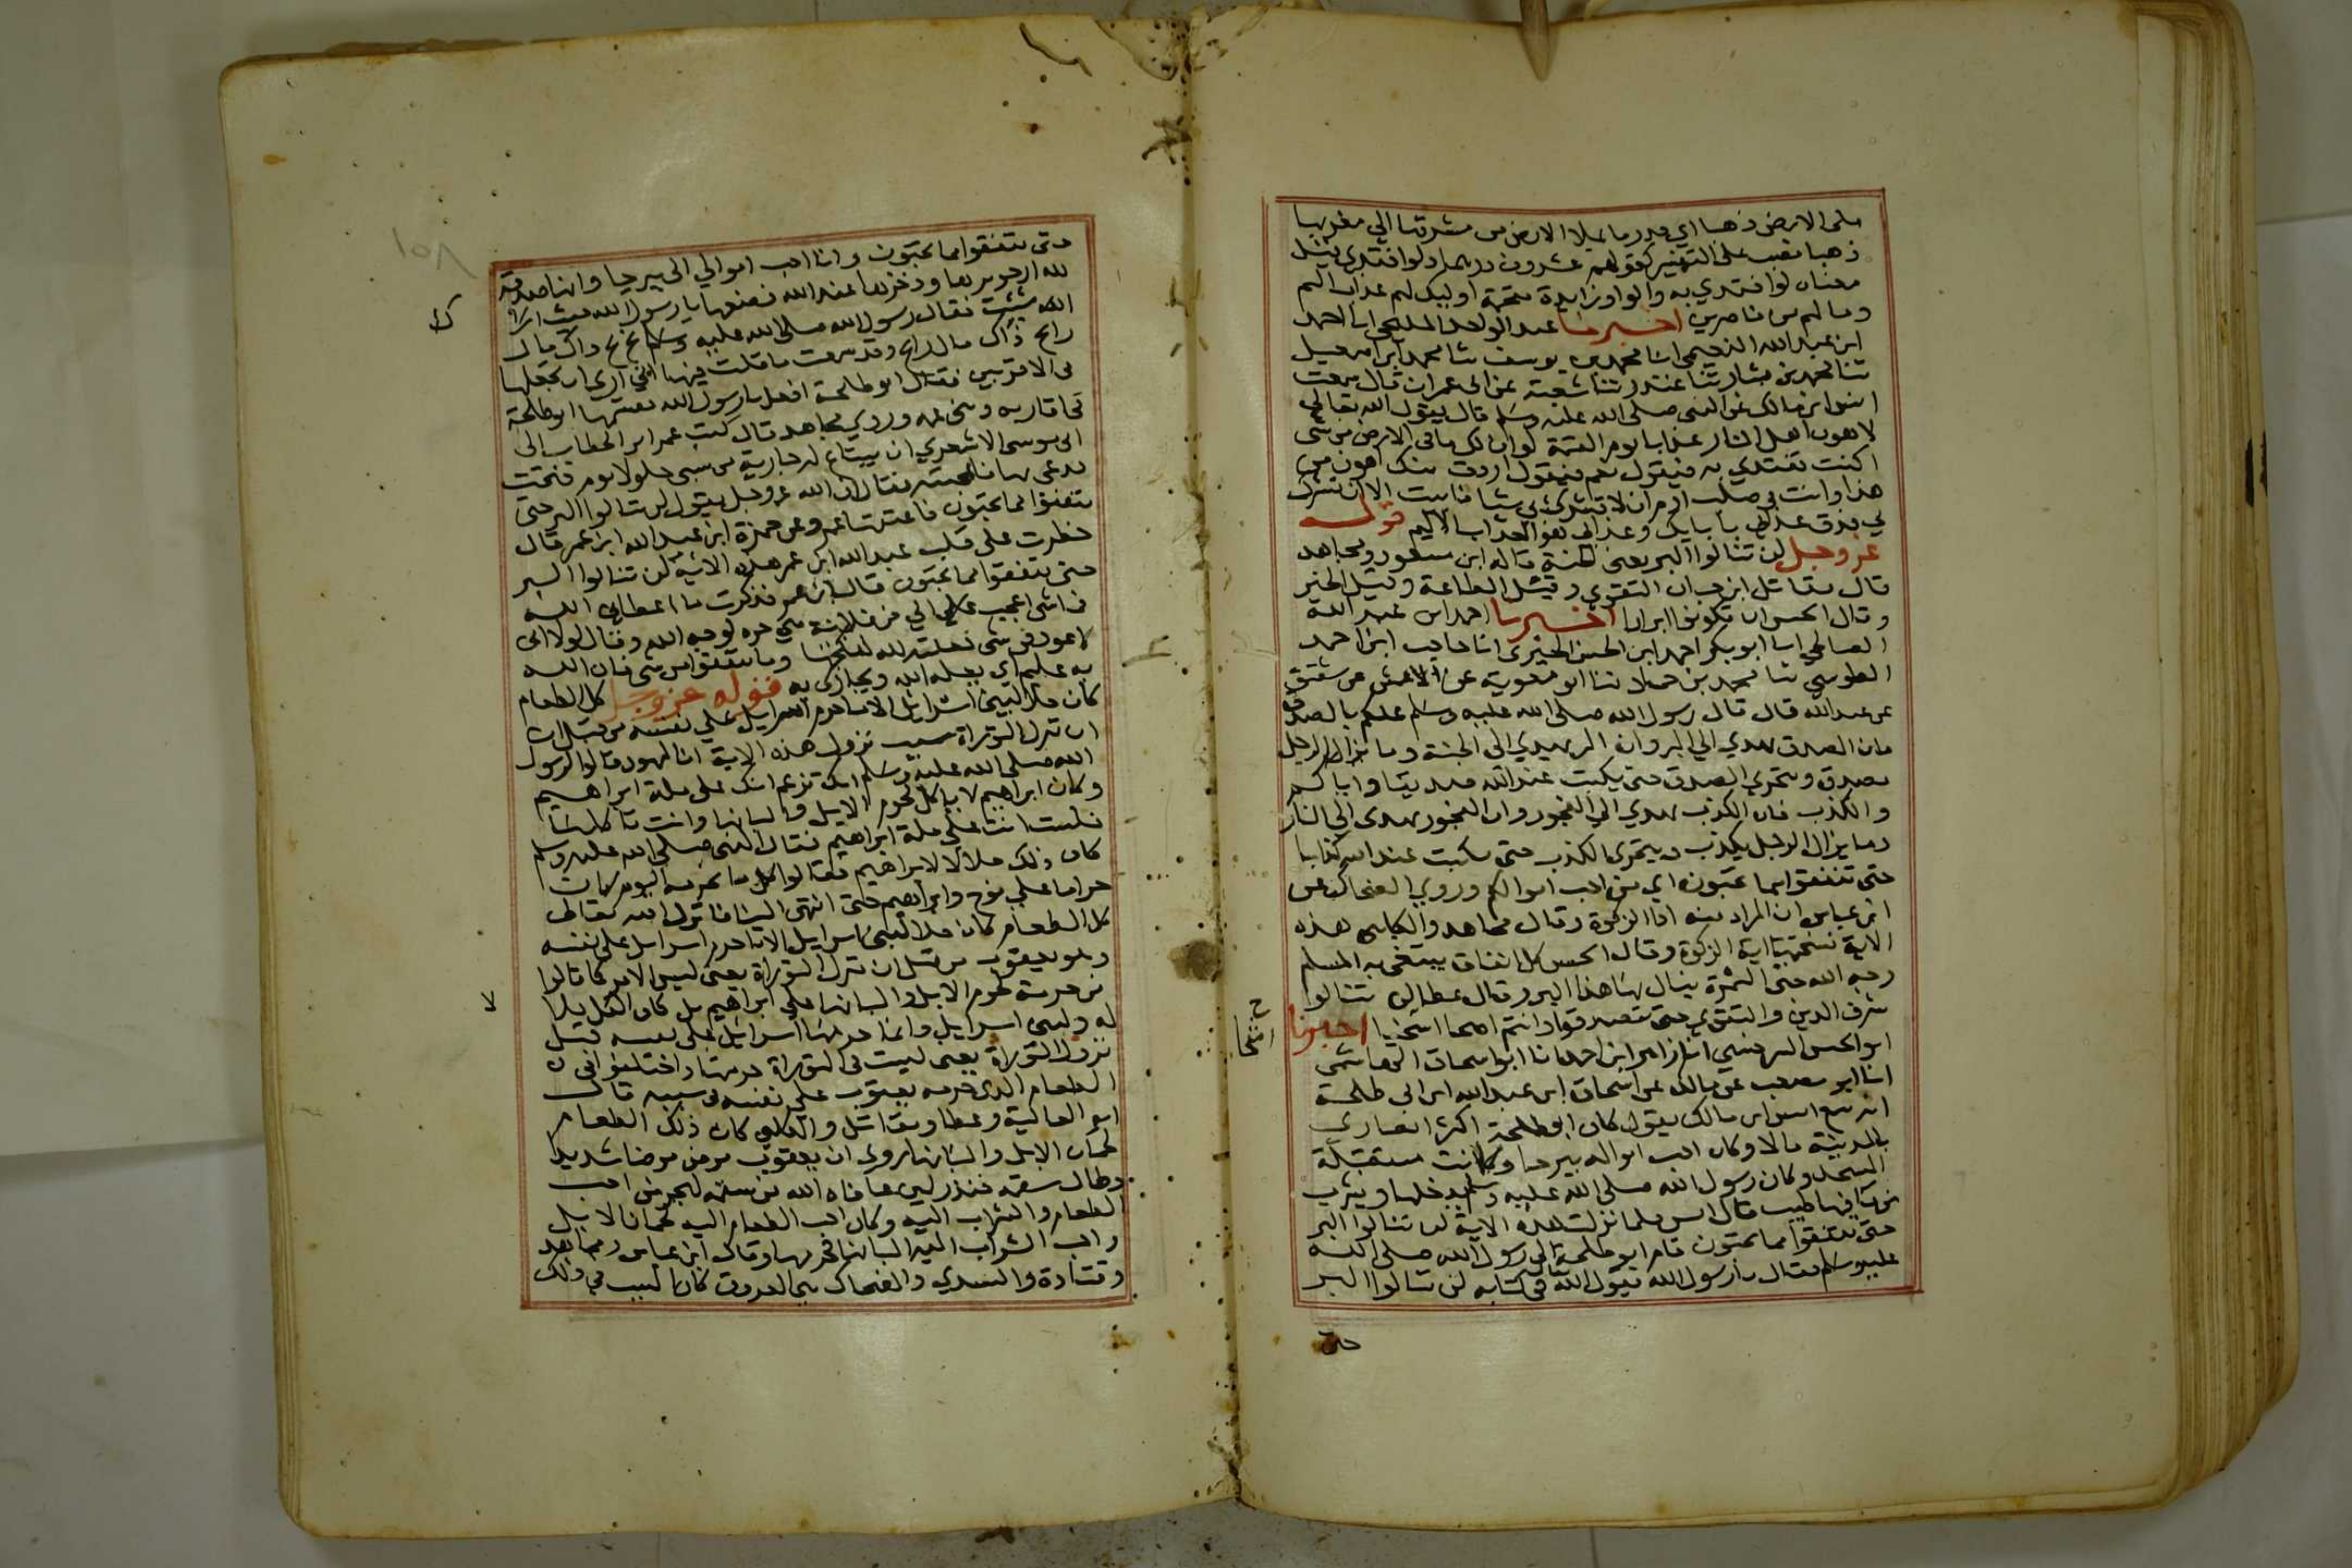 ملى الارض ذهبا اي قدر ما يملا الارض من مشرقها الي مغربها
ذهبا نصب على التفسير كقولهم عشرون درهما ولو افتدى به قيل
معناه لو افتدي به والواو زايدة مقحمة اوليك لهم عذاب اليم
وما لهم من ناصرين اخبرنا عبد الواحد المليحي انا احمد
ابن عبد الله النعيمي انا محمد بن يوسف ثنا محمد ابن اسمعيل
ثنا محمد بن بشار ثنا غندر ثنا شعبة عن ابي عمران قال سمعت
انس ابن مالك عن النبي صلى الله عليه وسلم قال يقول الله تعالى
لاهون اهل النار عذابا يوم القيمة لو ان لك ما في الارض من شي
اكنت تفتدي به فيقول نعم فيقول اردت منك اهون من
هذا وانت في صلب ادم ان لا تشرك بي شيا فابيت الا ان تشرك
بي قوله
عز وجل لن تنالوا البر يعني الجنة قاله ابن مسعود ومجاهد
قال مقاتل ابن حيان التقوي وقيل الطاعة وقيل الخير
وقال الحسن ان تكونوا ابرارا اخبرنا احمد ابن عبد الله
الصالحي انا ابو بكر احمد ابن الحسن الحيري انا حاجب ابن احمد
الطوسي ثنا محمد بن حماد ثنا ابو معوية عن الاعمش عن شقيق
عن عبد الله قال قال رسول الله صلى الله عليه وسلم عليكم بالصدق
فان الصدق يهدي الي البر وان البر يهدي الى الجنة وما يزال الرجل
يصدق ويتحري الصدق حتى يكتب عند الله صديقا واياكم
والكذب فان الكذب يهدي الي الفجور وان الفجور يهدى الي النار
وما يزال الرجل يكذب ويتحرى الكذب حتى يكتب عند الله كذابا
حتى تنفقوا مما تحبون اي من احب اموالكم وروي الضحاك عن
ابن عباس ان المراد منه ادا الزكوة وقال مجاهد والكلبي هذه
الاية نسختها اية الزكوة وقال الحسن كل انفاق يبتغي به المسلم
وجه الله حتى الثمرة ينال بها هذا البر وقال عطا لن تنالوا
شرف الدين والتقوي حتى تتصدقوا وانتم اصحا اشحا اخبرنا
ابو الحسن السرخسي انا زاهر ابن احمد انا ابو اسحاق الهاشمي
انا ابو مصعب عن مالك عن اسحاق ابن عبد الله ابن ابي طلحة
انه سمع انس ابن مالك يقول كان ابو طلحة اكثر انصاري
بالمدينة مالا وكان احب امواله بيرحا وكانت مستقبلة
المسجد وكان رسول الله صلى الله عليه وسلم يدخلها ويشرب
من ما فيها طيب قال انس فلما نزلت هذه الاية لن تنالوا البر
حتى تنفقوا مما تحبون قام ابو طلحة الى رسول الله صلى الله
عليه وسلم فقال يا رسول الله يقول الله في كتابه لن تنالوا البر
حتى
اشحا
١٥٨
حتى تنفقوا مما تحبون وان احب اموالي الى بيرحا وانها صدقة
لله ارجو برها وذخرها عند الله فضعها يا رسول الله حيث اراك
الله فقال رسول الله صلى الله عليه وسلم بخ بخ ذاك مال
رابح ذاك مال رابح وقد سمعت ما قلت فيها اني ارى ان تجعلها
في الاقربين فقال ابو طلحة افعل يا رسول الله فقسمها ابو طلحة
في اقاربه وبني عمه وروي مجاهد قال كتب عمر ابن الخطاب الى
ابي موسى الاشعري ان يبتاع له جارية من سبي جلولا يوم فتحت
فدعى بها فاعجبته فقال ان الله عز وجل يقول لن تنالوا البر حتى
تنفقوا مما تحبون فاعتقها عمر وعن حمزة ابن عبد الله ابن عمر قال
خطرت على قلب عبد الله ابن عمر هذه الاية لن تنالوا البر
حتى تنفقوا مما تحبون قال ابن عمر فذكرت ما اعطاني الله
فما شي اعجب الي من فلانة هي حره لوجه الله وقال لولا اني
لا اعود في شي جعلته لله لنكحتها وما تنفقوا من شي فان الله
به عليم اي يعلمه الله ويجازي به قوله عز وجل كل الطعام
كان حلا لبني اسرائيل الا ما حرم اسرايل علي نفسه من قبل
ان تنزل التوراة سبب نزول هذه الاية ان اليهود قالوا لرسول
الله صلى الله عليه وسلم انك تزعم انك على ملة ابراهيم
وكان ابراهيم لا ياكل لحوم الابل والبانها وانت تاكلها
فلست انت علي ملة ابراهيم فقال النبي صلى الله عليه وسلم
كان ذلك حلالا لابراهيم فقالوا كل ما نحرمه اليوم كان
حراما علي نوح وابراهيم حتى انتهى الينا فانزل الله تعالى
كل الطعام كان حلا لبني اسرايل الا ما حرم اسرايل على نفسه
وهو يعقوب من قبل ان تنزل التوراة يعني ليس الامر كما قالوا
من حرمة لحوم الابل والبانها على ابراهيم بل كان الكل حلا
له ولبني اسرايل وانما حرمها اسرائيل على نفسه قبل
نزول التوراة يعني ليست في التوراة حرمتها واختلفوا في
الطعام الذي حرمه يعقوب علي نفسه وفي سببه قال
ابو العالية وعطا ومقاتل والكلبي كان ذلك الطعام
لحمان الابل والبانها روي ان يعقوب مرض مرضا شديدا
وطال سقمه فنذر لين عافاه الله من سقمه ليحرمن احب
الطعام والشراب اليه وكان احب الطعام اليه لحمان الابل
واحب الشراب اليه البانها فحرمها وقال ابن عباس ومجاهد
وقتادة والسدي والضحاك هي العروق كان السبب في ذلك